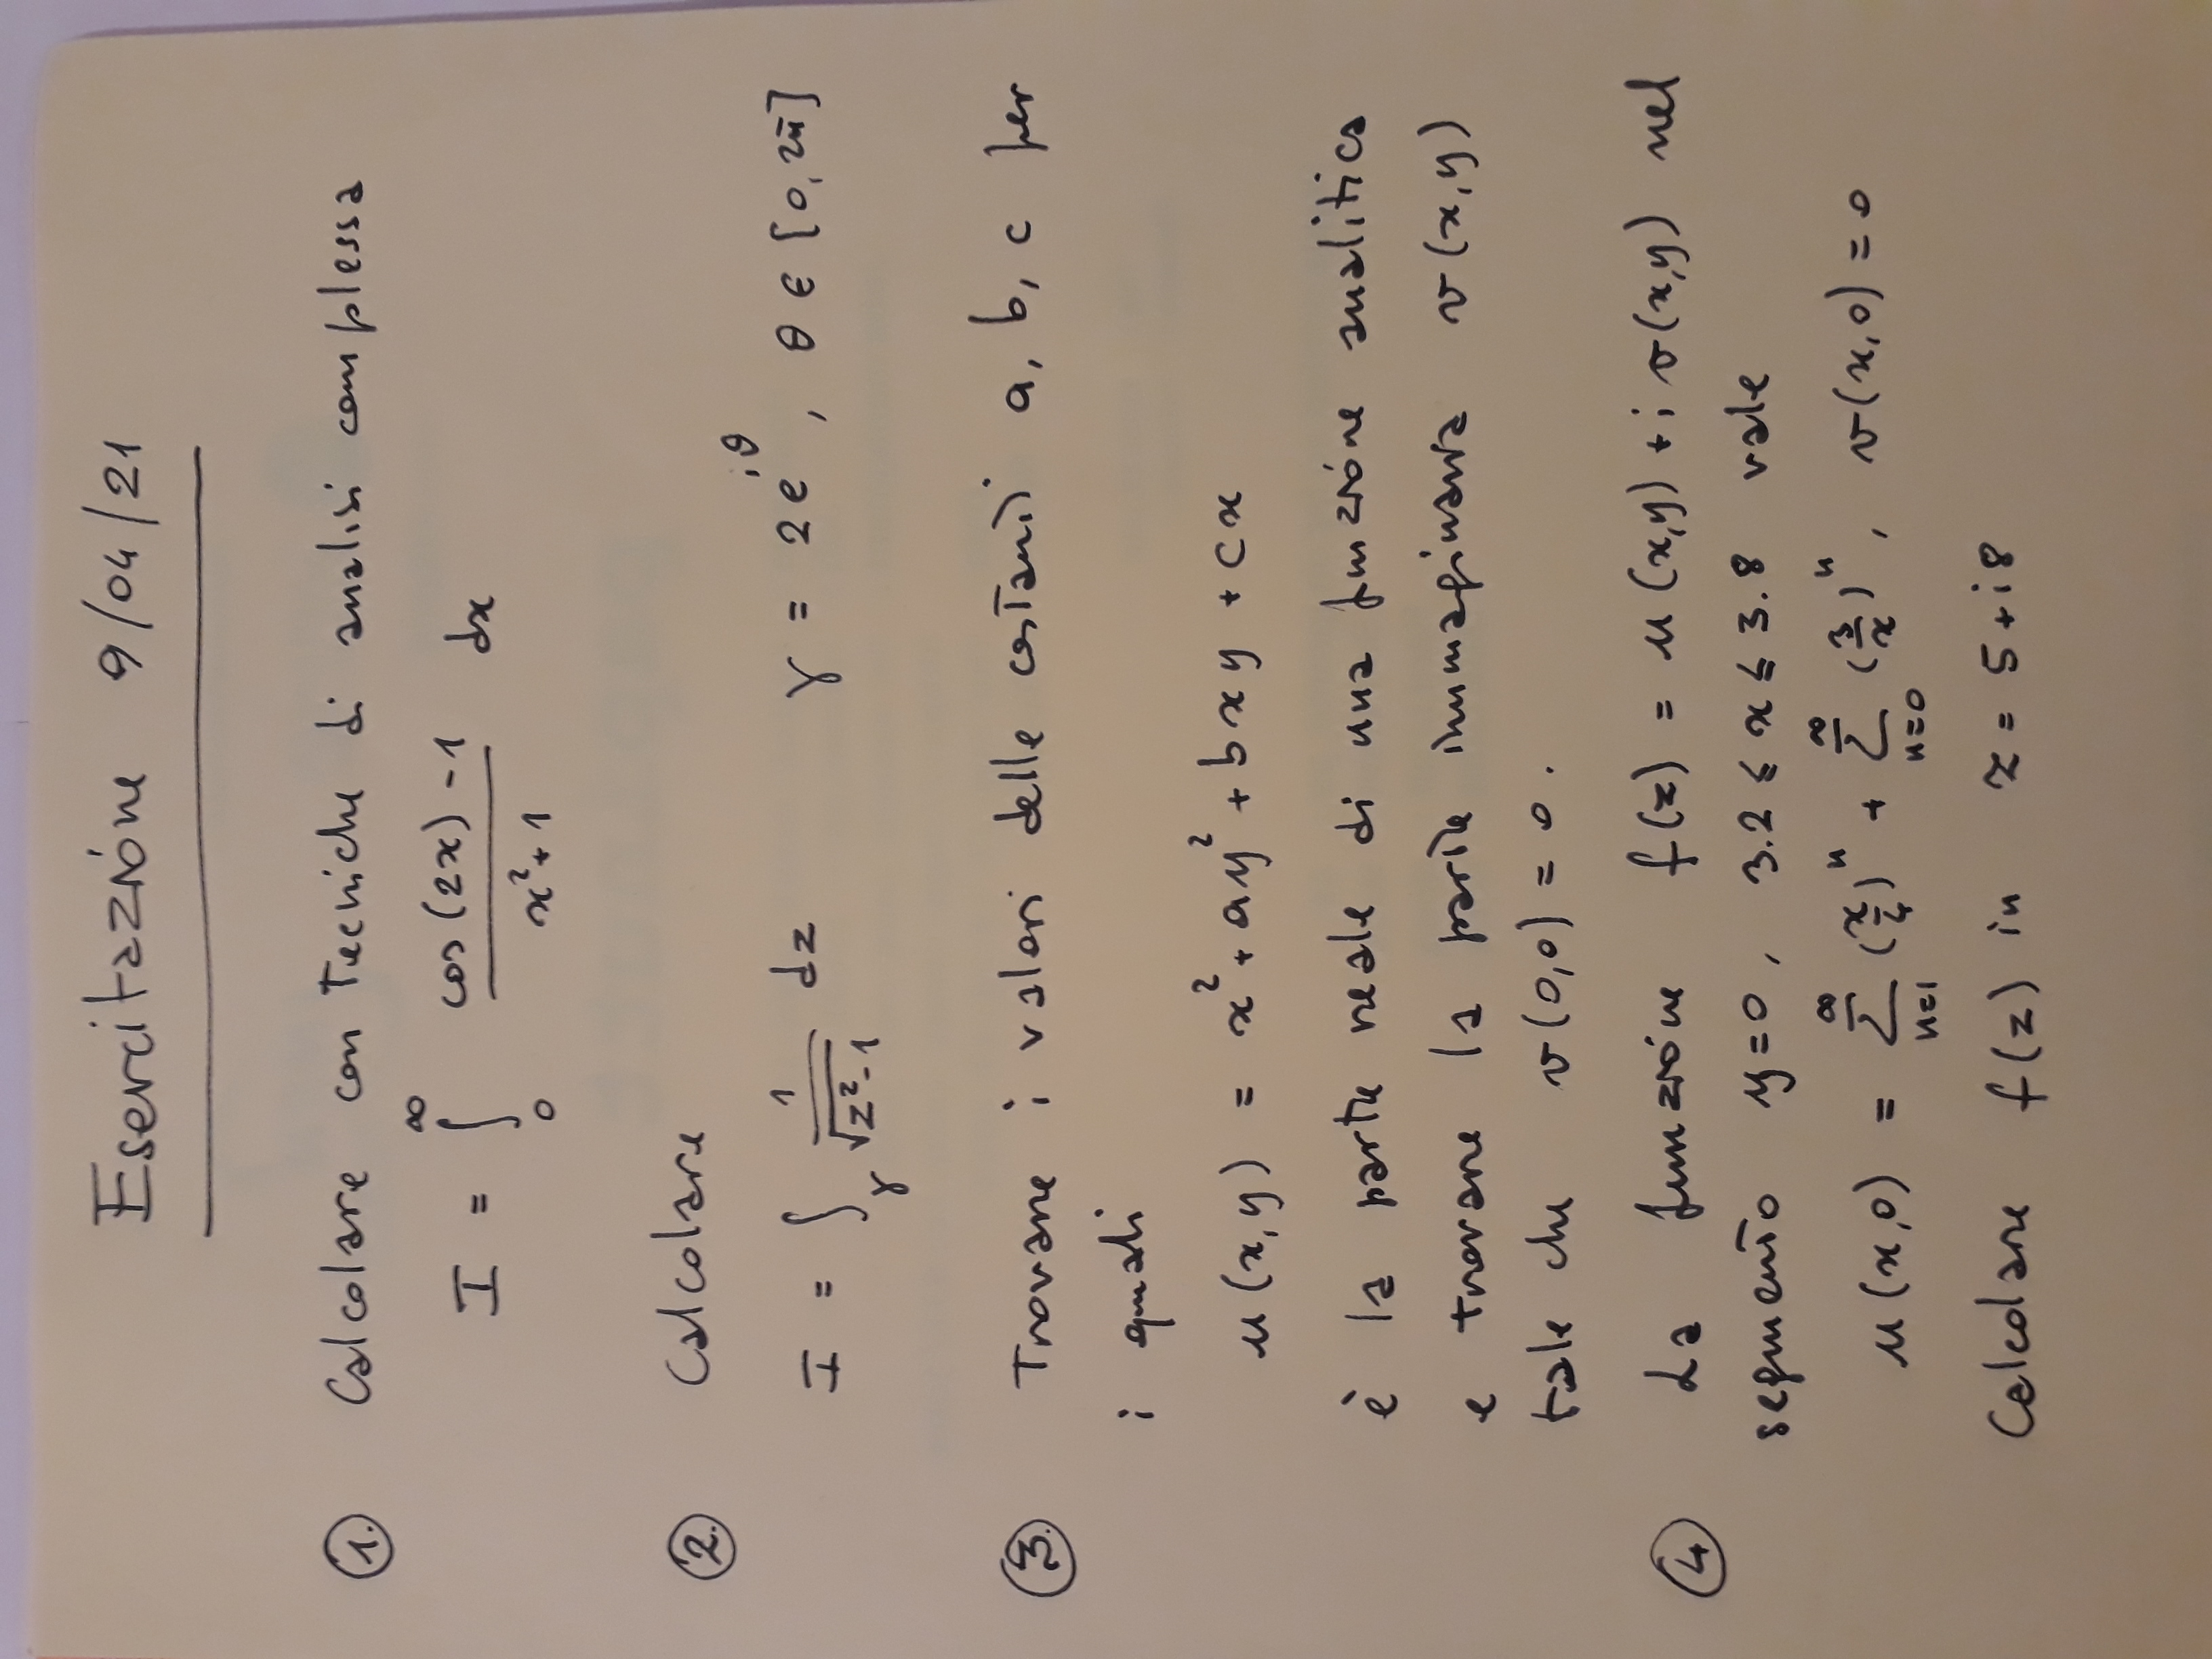 Esercitazione 9/04/21
1. Calcolare con tecniche di analisi complessa
I = ∫_0^∞ (cos(2x) - 1)/(x² + 1) dx
2. Calcolare
I = ∫_γ 1/√(z² - 1) dz   γ = 2e^{iθ}, θ ∈ [0, 2π]
3. Trovare i valori delle costanti a, b, c per
i quali
u(x,y) = x² + ay² + bxy + cx
è la parte reale di una funzione analitica
e trovare la parte immaginaria v(x,y)
tale che v(0,0) = 0.
4 La funzione f(z) = u(x,y) + i v(x,y) nel
segmento y=0, 3.2 ≤ x ≤ 3.8 vale
u(x,0) = ∑_{n=1}^∞ (x/4)^n + ∑_{n=0}^∞ (3/x)^n, v(x,0) = 0
Calcolare f(z) in z = 5 + i8